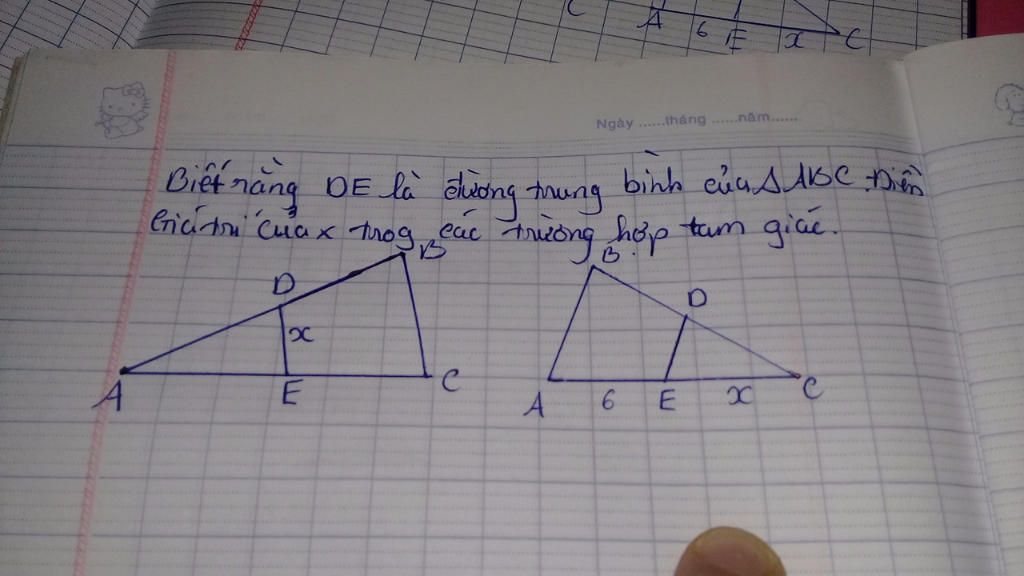 C A 6 E x C
Ngày ......tháng ......năm......
Biết rằng DE là đường trung bình của Δ ABC. Điền
Giá trị của x trog các trường hợp tam giác.
B B
D D
x
A E C A 6 E x C